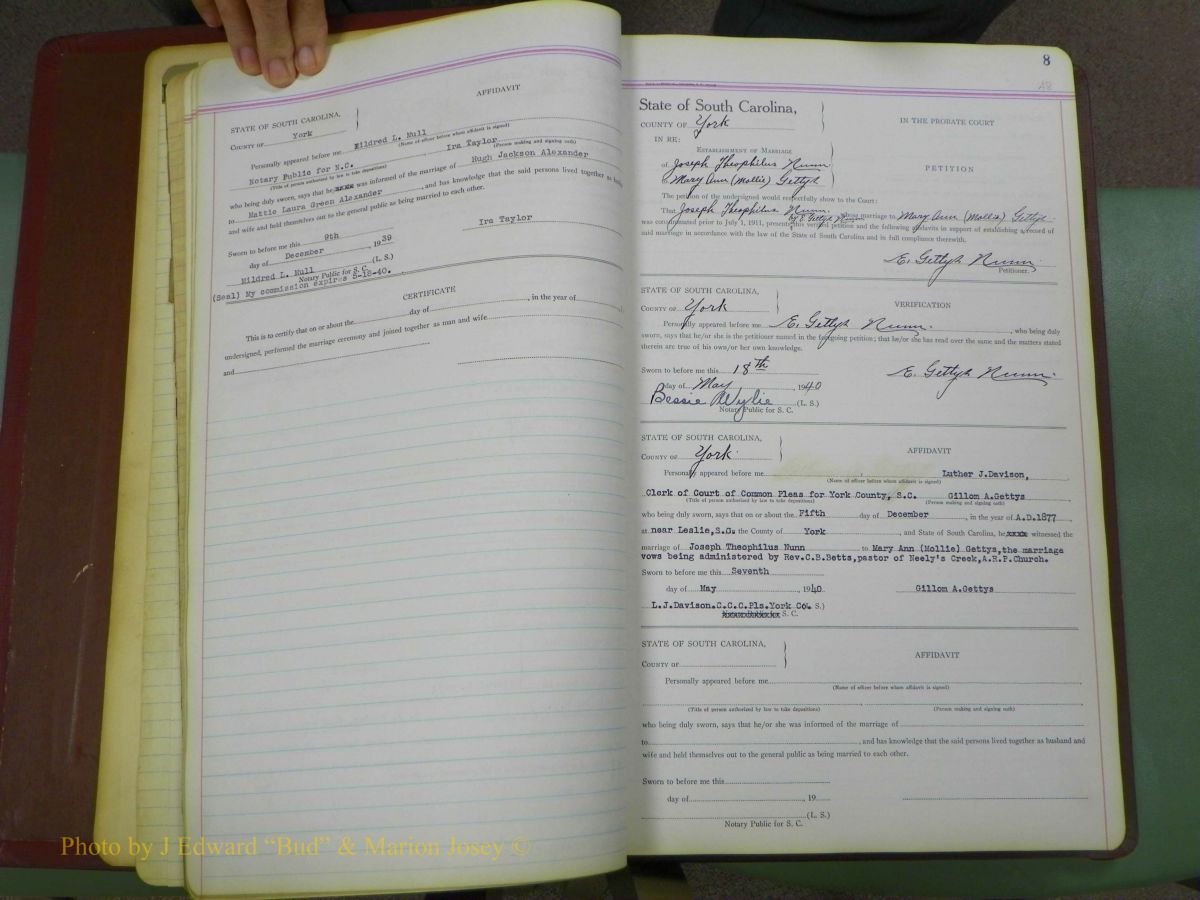 AFFIDAVIT
STATE OF SOUTH CAROLINA,
COUNTY OF York
Personally appeared before me Mildred L. Mull
(Name of officer before whom affidavit is signed)
Notary Public for N.C. Ira Taylor
(Title of person authorized by law to take depositions) (Person making and signing oath)
who being duly sworn, says that he was informed of the marriage of Hugh Jackson Alexander
to Mattie Laura Green Alexander, and has knowledge that the said persons lived together as
and wife and held themselves out to the general public as being married to each other.
Sworn to before me this 9th Ira Taylor
day of December, 1939
Mildred L. Mull (L. S.)
Notary Public for S. C.
(Seal) My commission expires 5-18-40.
CERTIFICATE
This is to certify that on or about the day of , in the year of
undersigned, performed the marriage ceremony and joined together as man and wife
and
8
State of South Carolina,
COUNTY OF York
IN THE PROBATE COURT
IN RE:
ESTABLISHMENT OF MARRIAGE
of Joseph Theophilus Nunn
to Mary Ann (Mollie) Gettys
PETITION
The petition of the undersigned would respectfully show to the Court:
That Joseph Theophilus Nunn by E. Gettys Nunn whose marriage to Mary Ann (Mollie) Gettys
was consummated prior to July 1, 1911, presents this verified petition and the following affidavits in support of establishing a record of
said marriage in accordance with the law of the State of South Carolina and in full compliance therewith.
E. Gettys Nunn
Petitioner.
STATE OF SOUTH CAROLINA,
COUNTY OF York
VERIFICATION
Personally appeared before me E. Gettys Nunn, who being duly
sworn, says that he/she is the petitioner named in the foregoing petition; that he/she has read over the same and the matters stated
therein are true of his own/or her own knowledge.
Sworn to before me this 18th
E. Gettys Nunn
day of May, 1940
Bessie Wylie (L. S.)
Notary Public for S. C.
STATE OF SOUTH CAROLINA,
COUNTY OF York
AFFIDAVIT
Personally appeared before me Luther J.Davison,
(Name of officer before whom affidavit is signed)
Clerk of Court of Common Pleas for York County, S.C. Gillom A.Gettys
(Title of person authorized by law to take depositions) (Person making and signing oath)
who being duly sworn, says that on or about the Fifth day of December, in the year of A.D.1877
at near Leslie,S.C. the County of York, and State of South Carolina, he witnessed the
marriage of Joseph Theophilus Nunn to Mary Ann (Mollie) Gettys,the marriage
vows being administered by Rev.C.B.Betts,pastor of Neely's Creek,A.R.P.Church.
Sworn to before me this Seventh
day of May, 1940 Gillom A.Gettys
L.J.Davison.C.C.C.Pls.York Co. S.)
S. C.
STATE OF SOUTH CAROLINA,
COUNTY OF
AFFIDAVIT
Personally appeared before me
(Name of officer before whom affidavit is signed)
(Title of person authorized by law to take depositions) (Person making and signing oath)
who being duly sworn, says that he/or she was informed of the marriage of
to , and has knowledge that the said persons lived together as husband and
wife and held themselves out to the general public as being married to each other.
Sworn to before me this
day of , 19
(L. S.)
Notary Public for S. C.
Photo by J Edward “Bud” & Marion Josey ©